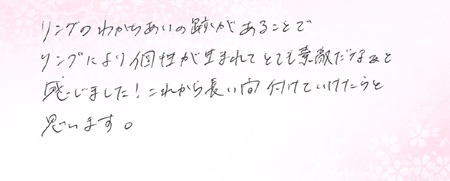 リングのわかちあいの跡があることで
リングにより個性が生まれてとても素敵だなぁと
感じました！これから長い間付けていけたらと
思います。